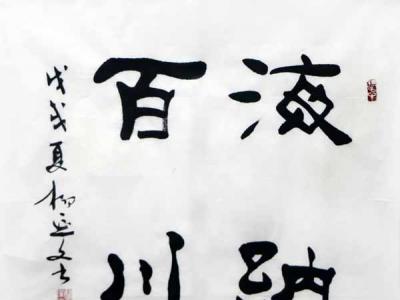 海纳
百川
戊戌夏杨延文书